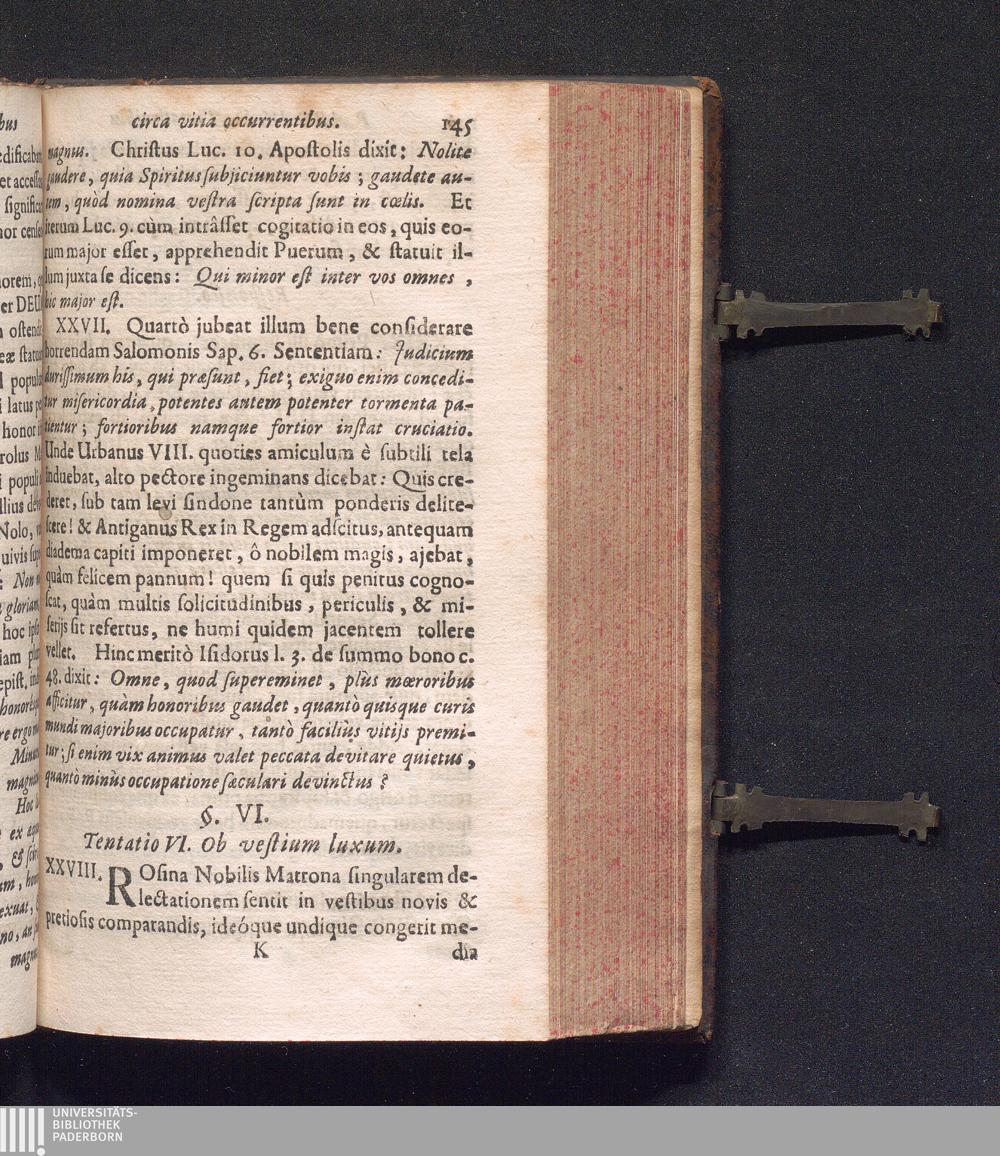 circa vitia occurrentibus. 145
magnus. Chriſtus Luc. 10. Apoſtolis dixit: Nolite
gaudere, quia Spiritus ſubjiciuntur vobis; gaudete au-
tem, quòd nomina veſtra ſcripta ſunt in cœlis. Et
iterum Luc. 9. cùm intrâſſet cogitatio in eos, quis eo-
rum major eſſet, apprehendit Puerum, & ſtatuit il-
lum juxta ſe dicens: Qui minor eſt inter vos omnes,
hic major eſt.
XXVII. Quartò jubeat illum bene conſiderare
horrendam Salomonis Sap. 6. Sententiam: Judicium
duriſſimum his, qui præſunt, fiet; exiguo enim concedi-
tur miſericordia, potentes autem potenter tormenta pa-
tientur; fortioribus namque fortior inſtat cruciatio.
Unde Urbanus VIII. quoties amiculum è ſubtili tela
induebat, alto pectore ingeminans dicebat: Quis cre-
deret, ſub tam levi ſindone tantùm ponderis delite-
ſcere! & Antiganus Rex in Regem adſcitus, antequam
diadema capiti imponeret, ô nobilem magis, ajebat,
quàm felicem pannum! quem ſi quis penitus cogno-
ſcat, quàm multis ſolicitudinibus, periculis, & mi-
ſerijs ſit refertus, ne humi quidem jacentem tollere
vellet. Hinc meritò Iſidorus l. 3. de ſummo bono c.
48. dixit: Omne, quod ſupereminet, plùs mœroribus
afficitur, quàm honoribus gaudet, quantò quisque curis
mundi majoribus occupatur, tantò faciliùs vitijs premi-
tur; ſi enim vix animus valet peccata devitare quietus,
quantò minùs occupatione ſæculari devinctus?
§. VI.
Tentatio VI. Ob veſtium luxum.
XXVIII. ROſina Nobilis Matrona ſingularem de-
lectationem ſentit in veſtibus novis &
pretioſis comparandis, ideóque undique congerit me-
K dia
UNIVERSITÄTS-
BIBLIOTHEK
PADERBORN